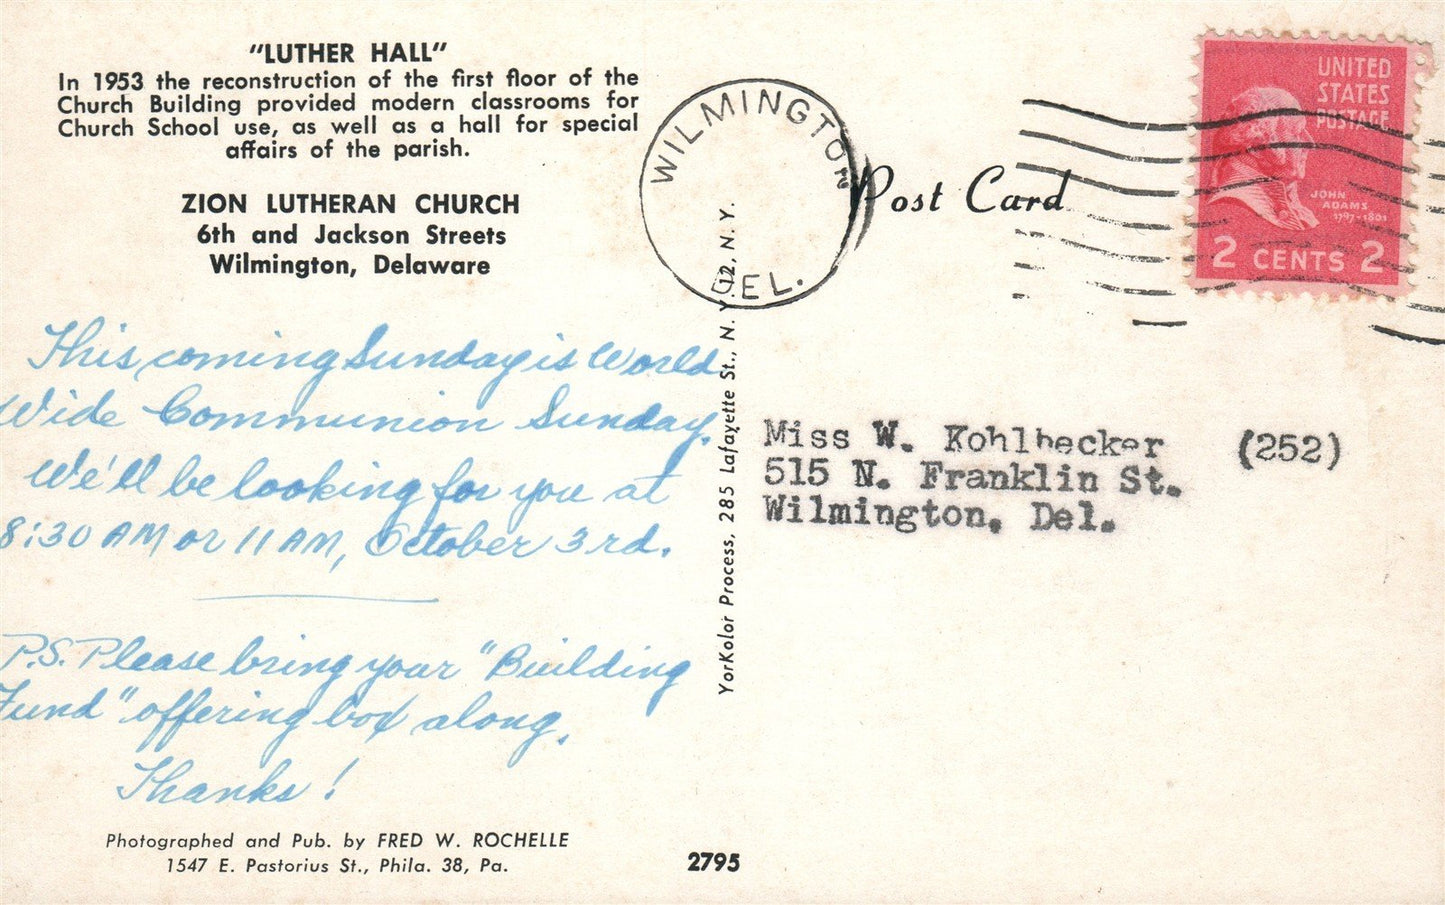 "LUTHER HALL"
In 1953 the reconstruction of the first floor of the
Church Building provided modern classrooms for
Church School use, as well as a hall for special
affairs of the parish.
ZION LUTHERAN CHURCH
6th and Jackson Streets
Wilmington, Delaware
This coming Sunday is World
Wide Communion Sunday.
We'll be looking for you at
8:30 AM or 11 AM, October 3rd.
P.S. Please bring your "Building
Fund" offering box along.
Thanks!
Photographed and Pub. by FRED W. ROCHELLE
1547 E. Pastorius St., Phila. 38, Pa.
YorKolor Process, 285 Lafayette St., N. Y. 12, N. Y.
2795
WILMINGTON
DEL.
Post Card
UNITED
STATES
POSTAGE
JOHN
ADAMS
1797-1801
2 CENTS 2
Miss W. Kohlbecker (252)
515 N. Franklin St.
Wilmington, Del.